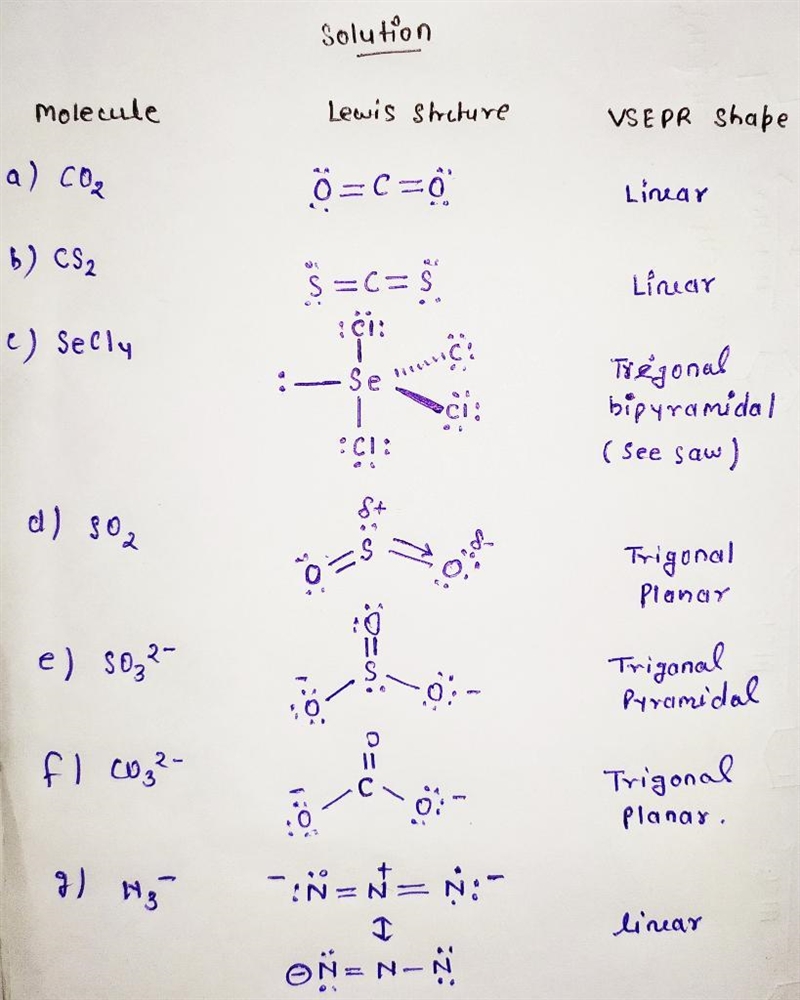 Solution
Molecule Lewis Shrcture VSEPR Shape
a) CO2 Ö=C=Ö Linear
b) CS2 S=C=S Linear
:Cl:
c) SeCl4 :—Se Cl: Cl: Trigonal
bipyramidal
:Cl: (See saw)
δ+
d) SO2 O=S O δ- Trigonal
Planar
:O
||
e) SO3 2- - :O S O: - Trigonal
Pyramidal
O
||
f) CO3 2- - :O C O: - Trigonal
Planar.
g) N3- - :N=N+=N: - linear
⊖N=N-N